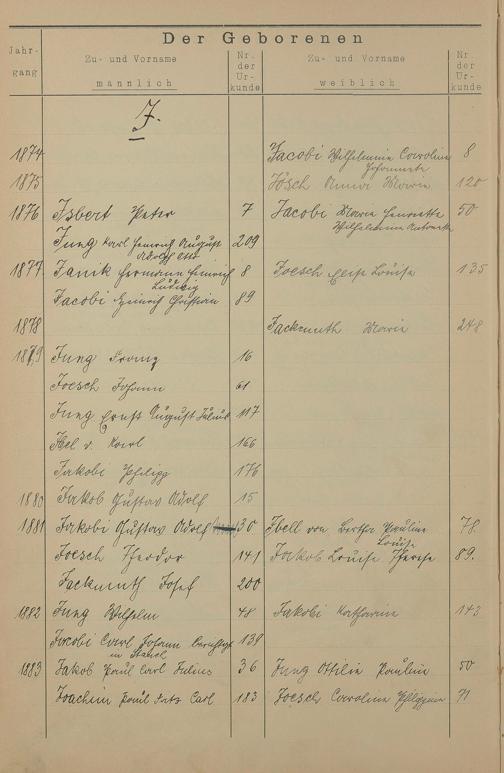 Der Geborenen
Jahrgang
Zu- und Vorname
männlich
Nr. der Urkunde
Zu- und Vorname
weiblich
Nr. der Urkunde
J.
1874 Jacobi Wilhelmine Caroline Johannete 8
1875 Jösch Anna Marie 120
1876 Isbert Peter 7 Jacobi Marie Henriette Wilhelmine Antonette 50
Jung Karl Heinrich August Adolf Otto 209
1877 Janik Hermann Heinrich Ludwig 8 Joesch Louise 135
Jacobi Heinrich Christian 89
1878 Jackmuth Marie 248
1879 Jung Franz 16
Joesch Johann 61
Jung Ernst August Julius 117
Ibel v. Karl 166
Jakobi Philipp 176
1880 Jakob Gustav Adolf 15
1881 Jakobi Gustav Adolf 30 Ibell von Bertha Pauline Louise 78.
Joesch Theodor 141 Jakob Louise Therese 89.
Jackmuth Josef 200
1882 Jung Wilhelm 48 Jakobi Katharine 143
Jacobi Carl Johann berichtigt in 139
1883 Jakob Paul Carl Julius 36 Jung Ottilie Pauline 50
Joachim Paul Fritz Carl 183 Joesch Caroline Philippine 71